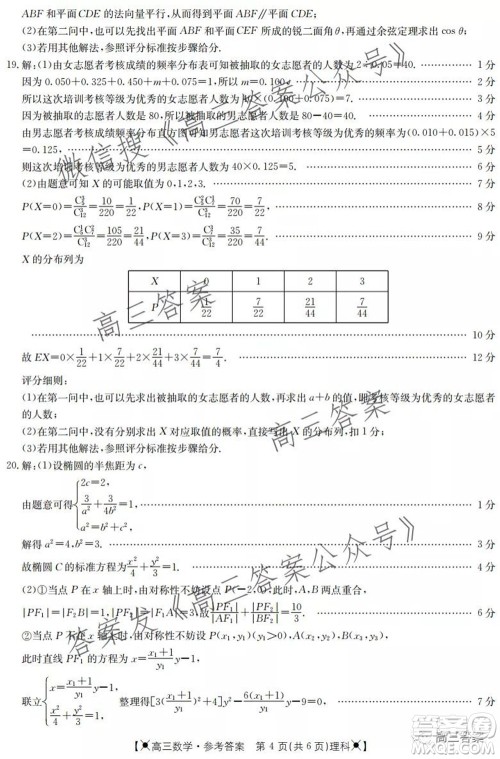 ABF和平面CDE的法向量平行,从而得到平面ABF∥平面CDE;
(2)在第二问中,也可以先找出平面ABF和平面CEF所成的锐二面角θ,再通过余弦定理求出cos θ;
(3)若用其他解法,参照评分标准按步骤给分.
19.解:(1)由女志愿者考核成绩的频率分布表可知被抽取的女志愿者的人数为2÷0.05=40. 1分
因为0.050+0.325+0.450+m+0.075=1,所以m=0.100. 2分
所以这次培训考核等级为优秀的女志愿者人数为40×(0.100+0.075)=7. 3分
因为被抽取的志愿者人数是80,所以被抽取的男志愿者人数是80-40=40. 4分
由男志愿者考核成绩频率分布直方图可知男志愿者这次培训考核等级为优秀的频率为(0.010+0.015)×5
=0.125, 5分
则这次培训考核等级为优秀的男志愿者人数为40×0.125=5. 6分
(2)由题意可知X的可能取值为0,1,2,3. 7分
P(X=0)=C₅³/C₁₂³=10/220=1/22,P(X=1)=C₅²C₇¹/C₁₂³=70/220=7/22, 8分
P(X=2)=C₅¹C₇²/C₁₂³=105/220=21/44,P(X=3)=C₇³/C₁₂³=35/220=7/44. 9分
X的分布列为
X 0 1 2 3
P 1/22 7/22 21/44 7/44
10分
故EX=0×1/22+1×7/22+2×21/44+3×7/44=7/4. 12分
评分细则:
(1)在第一问中,也可以先求出被抽取的女志愿者的人数,再求出a+b的值,则考核等级为优秀的男志愿者的人数.
(2)在第二问中,没有分别求出X对应取值的概率,直接写出X的分布列,扣1分;
(3)若用其他解法,参照评分标准按步骤给分.
20.解:(1)设椭圆的半焦距为c,
由题意可得{2c=2, 3/a²+3/4b²=1, a²=b²+c², 1分
解得a²=4,b²=3. 3分
故椭圆C的标准方程为x²/4+y²/3=1. 4分
(2)①当点P在x轴上时,由对称性不妨设点P(-2,0),此时,A,B两点重合,
|PF₁|=|F₂B|=1,|PF₂|=|F₁A|=3,故|PF₁|/|AF₁|+|PF₂|/|BF₂|=10/3. 6分
②当点P不在x轴上时,由对称性不妨设P(x₁,y₁)(y₁>0),A(x₂,y₂),B(x₃,y₃),
此时直线PF₁的方程为x=(x₁+1)/y₁ y-1,
联立{x=(x₁+1)/y₁ y-1, x²/4+y²/3=1, 整理得[3((x₁+1)/y₁)²+4]y²-6(x₁+1)/y₁ y-9=0, 7分
高三数学·参考答案 第4页(共6页)理科
微信搜《高三答案公众号》
高三答案
高三答案
答案发《高三答案公众号》
高三答案